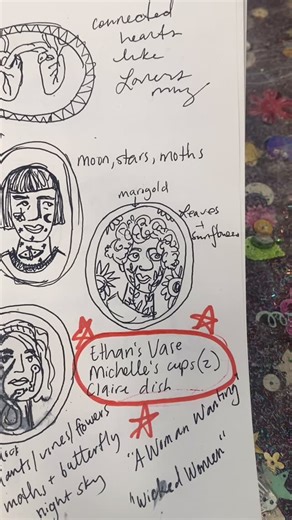 connected
hearts
like
Lovers
moon, stars, moths
marigold
leaves
+
sunflowers
Ethan's Vase
Michelle's cups (2)
Claire dish
plants/vines/flowers
moths + butterfly
night sky
"A Woman Wanting"
"Wicked Women"